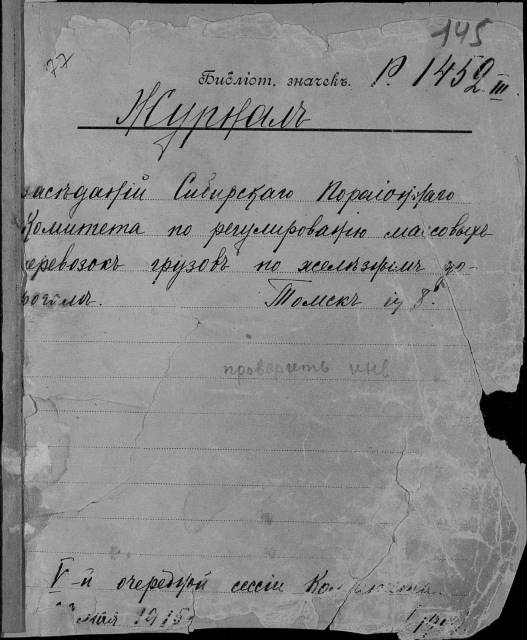 145
77
Библіот. значекъ. Р. 1452 III
Журналъ
засѣданій Сибирскаго Пораіоннаго
Комитета по регулированію массовыхъ
перевозокъ грузовъ по желѣзнымъ до-
рогамъ. Томскъ
проверить инв
V-й очередной сессіи
мая 1915